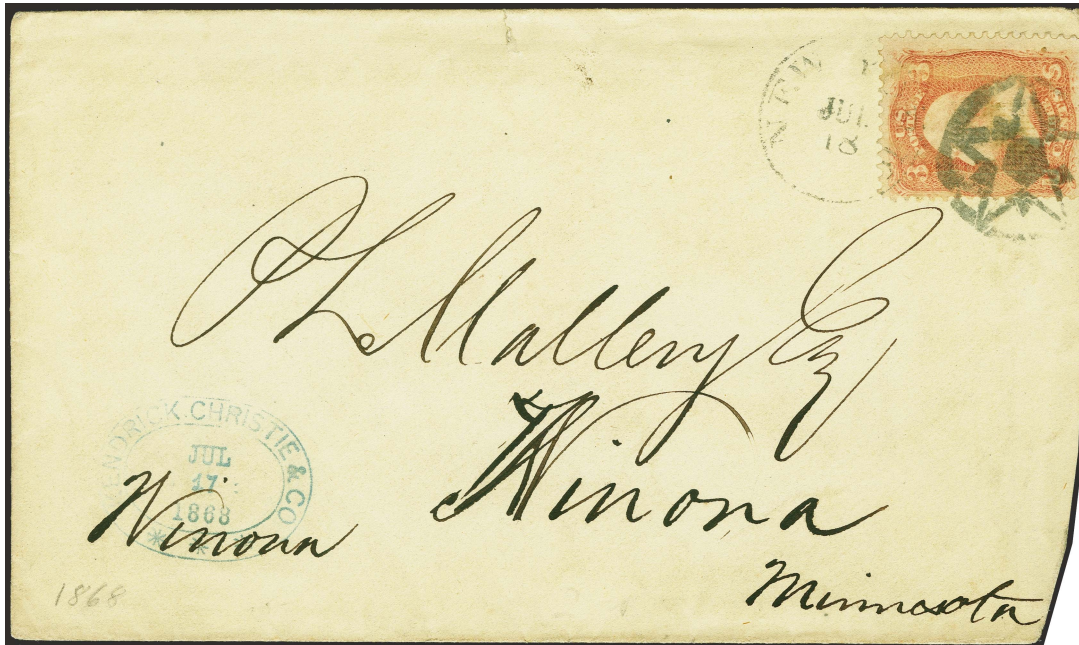 NEW
JUL
18
3 3
U S
P L Mallery Esq
Winona
Minnesota
CHRISTIE & CO
JUL
17
1868
Winona
1868